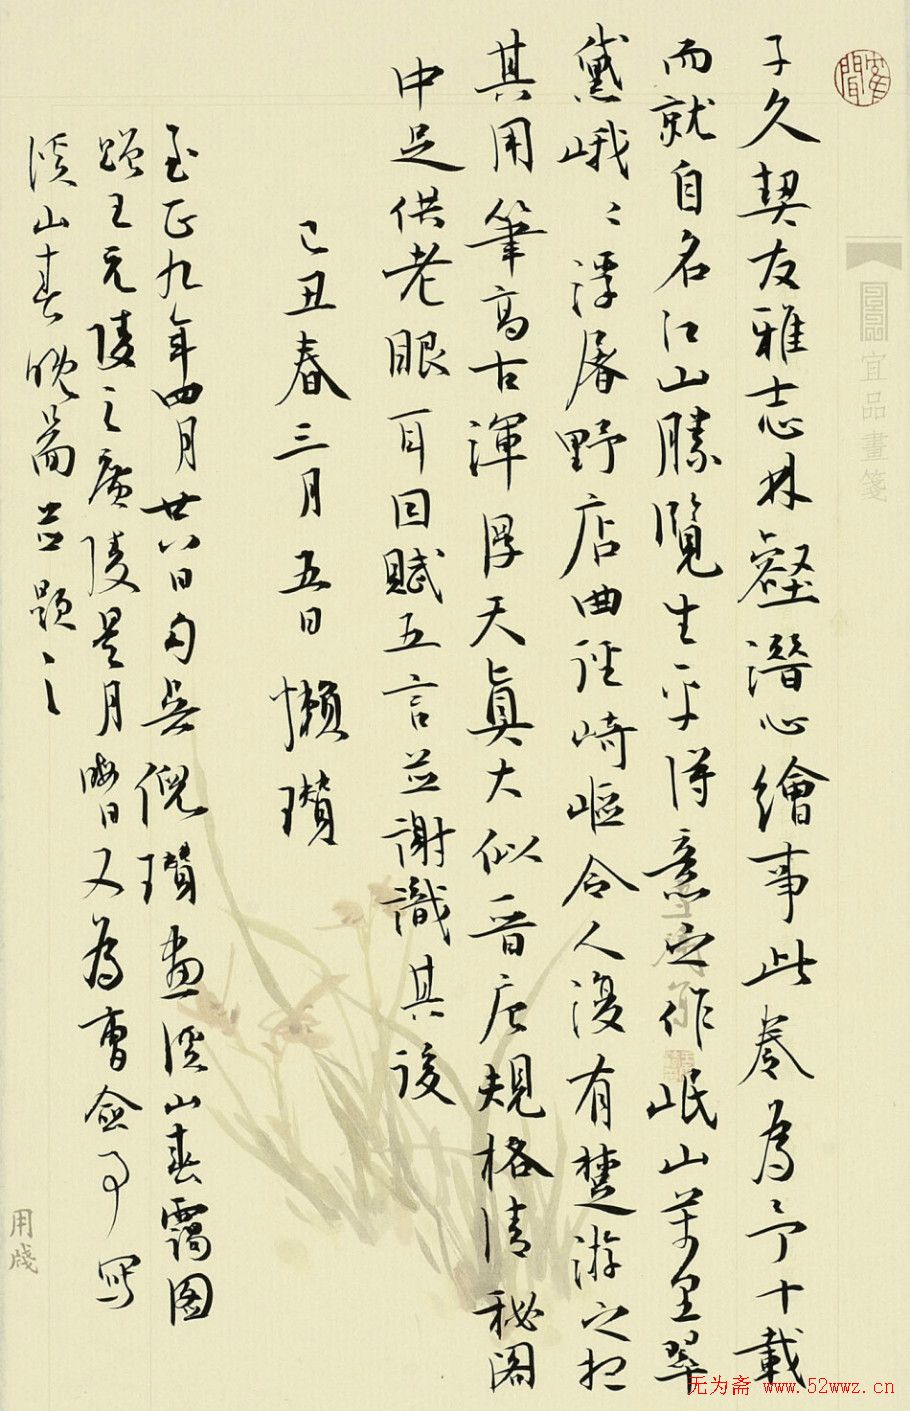 子久契友雅志林壑潛心繪事此卷為予十載
而就自名江山勝覽生平得意之作岷山萬里翠
黛峨〻浮屠野店曲徑崎嶇令人復有楚游之想
其用筆高古渾厚天眞大似晉唐規格清秘閣
中足供老眼耳因賦五言並謝識其後
己丑春三月五日懶瓚
至正九年四月廿八日勾吳倪瓚畫溪山春靄圖
贈王元陵之廣陵是月晦日又為曹僉事寫
溪山春晚圖並題之
宜品畫箋
用牋
无为斋 www.52wwz.cn